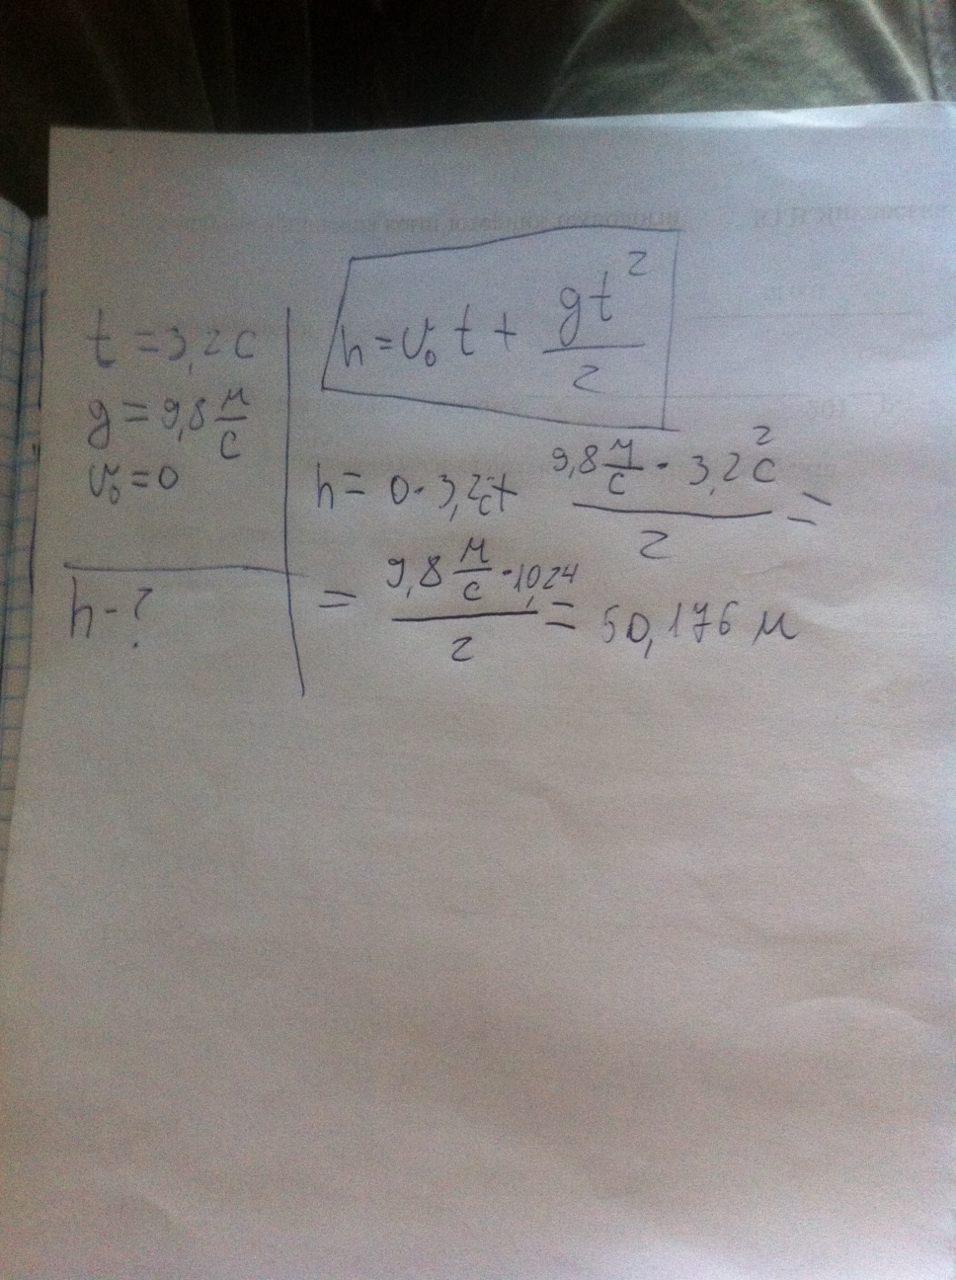 t = 3,2 с
g = 9,8 м/с
v₀ = 0
h - ?
h = v₀ t + gt²/2
h = 0 · 3,2 с + 9,8 м/с · 3,2 с²/2 =
= 9,8 м/с · 10,24/2 = 50,176 м